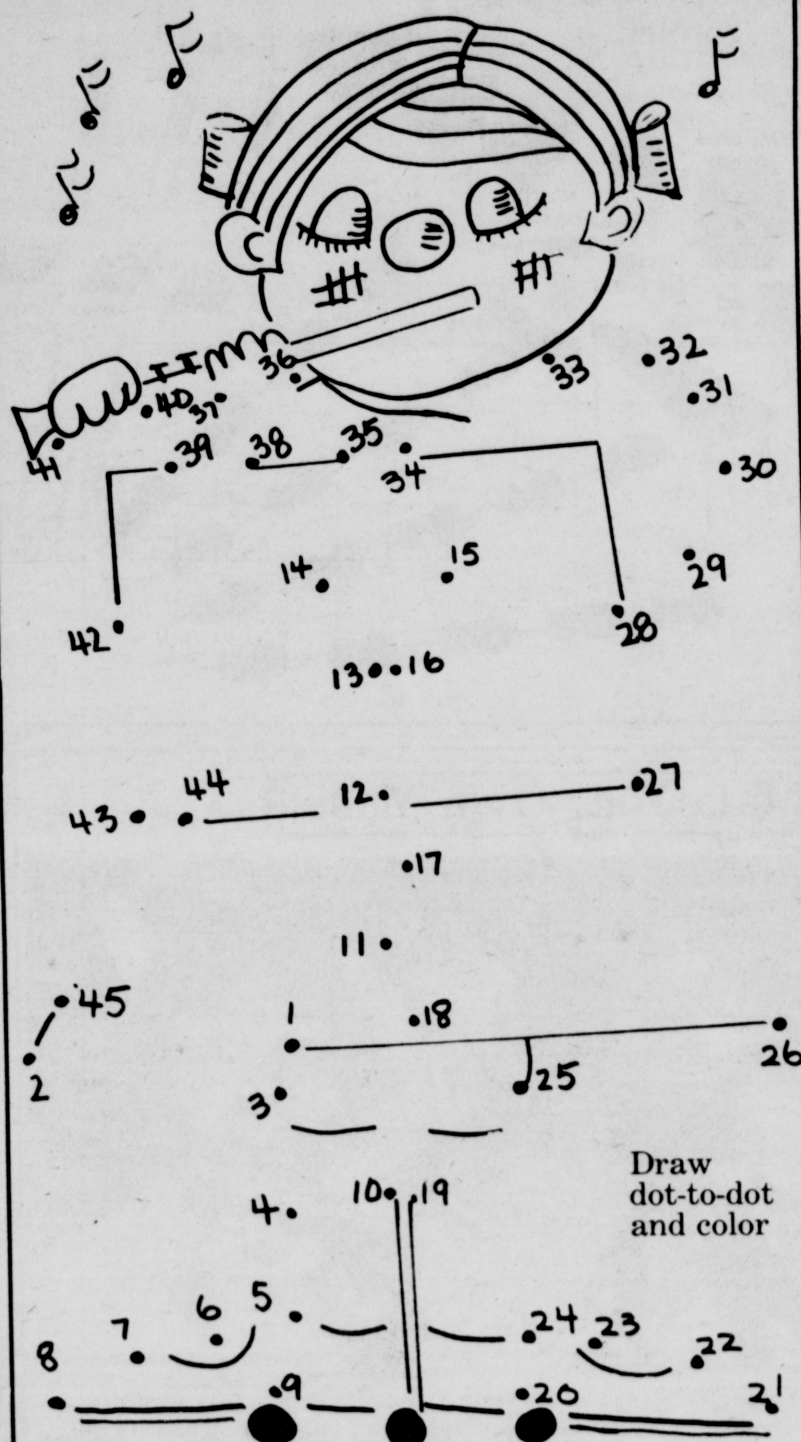 36
33
32
31
40
37
41
39
38
35
34
30
14
15
29
42
28
13
16
43
44
12
27
17
11
45
1
18
2
3
25
26
Draw
dot-to-dot
and color
4
10
19
5
6
7
8
24
23
22
9
20
21